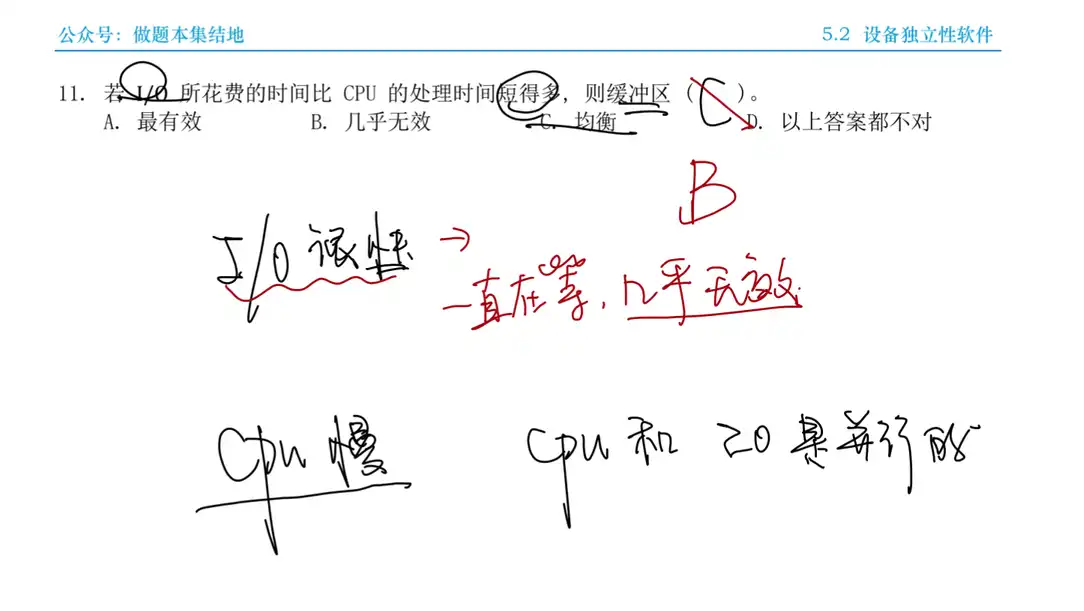 公众号：做题本集结地
5.2 设备独立性软件
11. 若 I/O 所花费的时间比 CPU 的处理时间短得多，则缓冲区（ C ）。
A. 最有效 B. 几乎无效 C. 均衡 D. 以上答案都不对
B
I/O 很快 →
一直在等cpu，几乎无效
Cpu 慢
Cpu 和 IO 是并行的